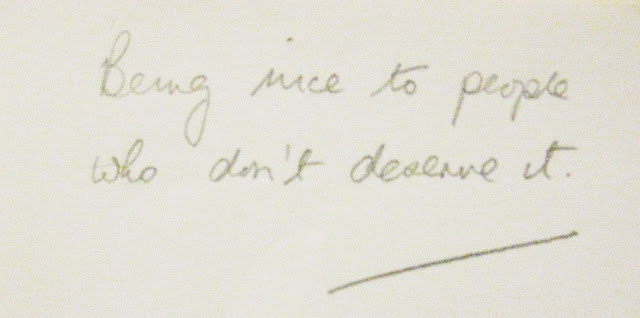 Being nice to people
who don't deserve it.